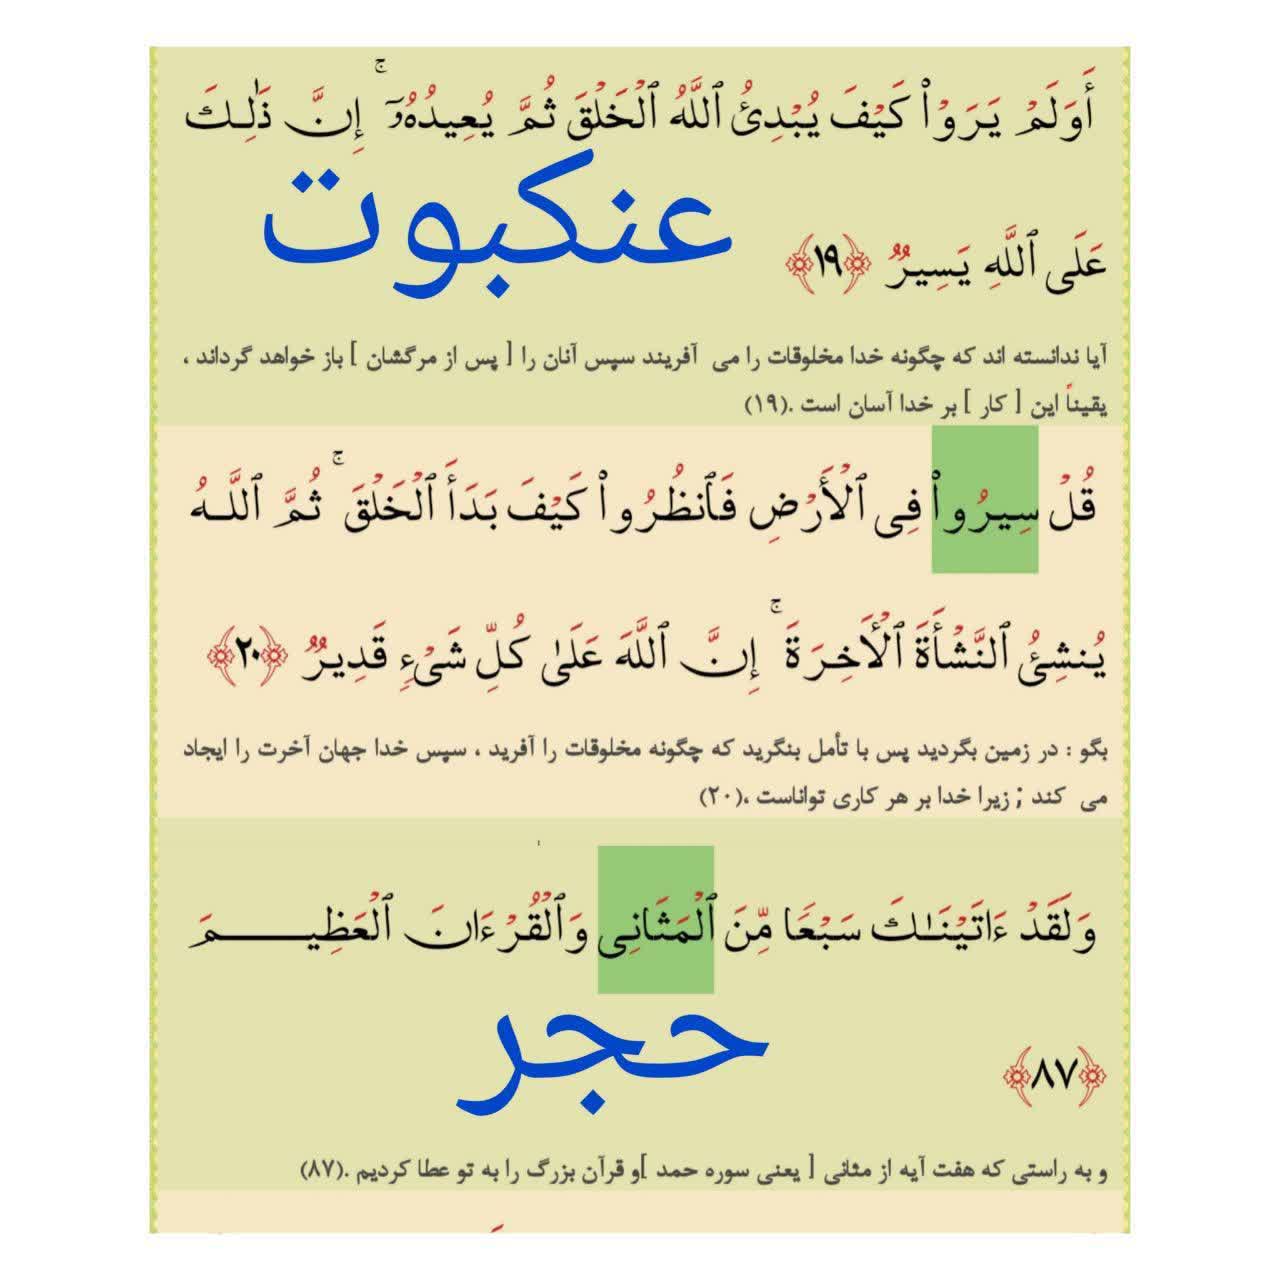 أَوَلَمْ يَرَوْا۟ كَيْفَ يُبْدِئُ ٱللَّهُ ٱلْخَلْقَ ثُمَّ يُعِيدُهُۥٓ ۚ إِنَّ ذَٰلِكَ
عَلَى ٱللَّهِ يَسِيرٌ ﴿١٩﴾
عنکبوت
آیا ندانسته اند که چگونه خدا مخلوقات را می آفریند سپس آنان را [ پس از مرگشان ] باز خواهد گرداند ،
یقیناً این [ کار ] بر خدا آسان است .(۱۹)
قُلْ سِيرُوا۟ فِى ٱلْأَرْضِ فَٱنظُرُوا۟ كَيْفَ بَدَأَ ٱلْخَلْقَ ۚ ثُمَّ ٱللَّهُ
يُنشِئُ ٱلنَّشْأَةَ ٱلْأَخِرَةَ ۚ إِنَّ ٱللَّهَ عَلَىٰ كُلِّ شَىْءٍ قَدِيرٌ ﴿٢٠﴾
بگو : در زمین بگردید پس با تأمل بنگرید که چگونه مخلوقات را آفرید ، سپس خدا جهان آخرت را ایجاد
می کند ; زیرا خدا بر هر کاری تواناست ،(۲۰)
وَلَقَدْ ءَاتَيْنَـٰكَ سَبْعًا مِّنَ ٱلْمَثَانِى وَٱلْقُرْءَانَ ٱلْعَظِيمَ
﴿٨٧﴾
حجر
و به راستی که هفت آیه از مثانی [ یعنی سوره حمد ]و قرآن بزرگ را به تو عطا کردیم .(۸۷)